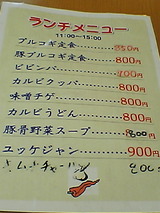 ランチメニュー
11:00~15:00
プルコギ定食
豚プルコギ定食……800円
ビビンバ
カルビクッパ……800円
味噌チゲ……800円
カルビうどん……800円
豚骨野菜スープ…800円
ユッケジャン……900円